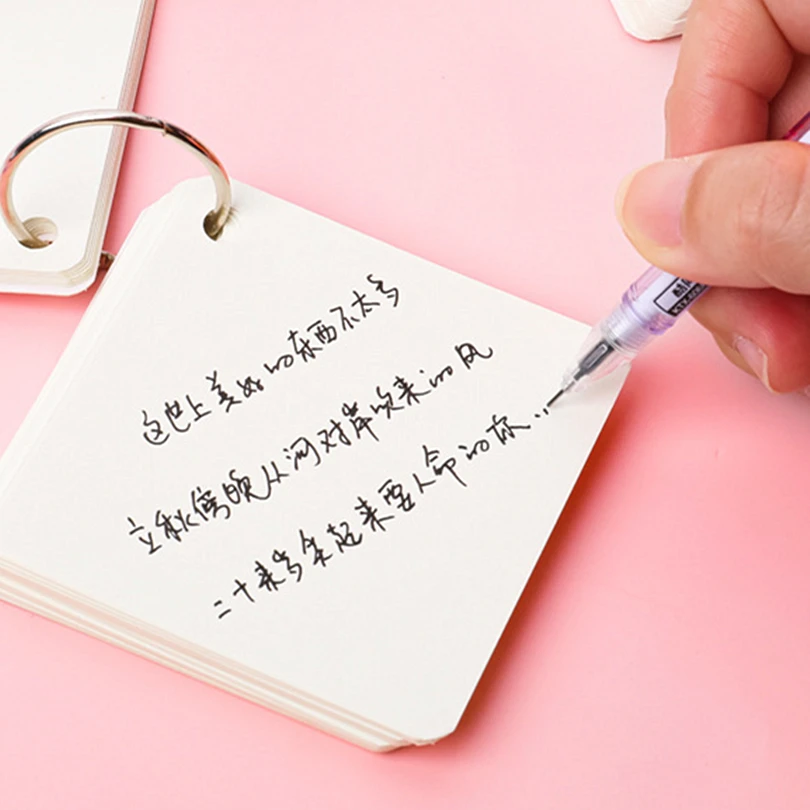 这世上美好的东西不太多
立秋傍晚从河对岸吹来的风
二十来岁笑起来要人命的你...